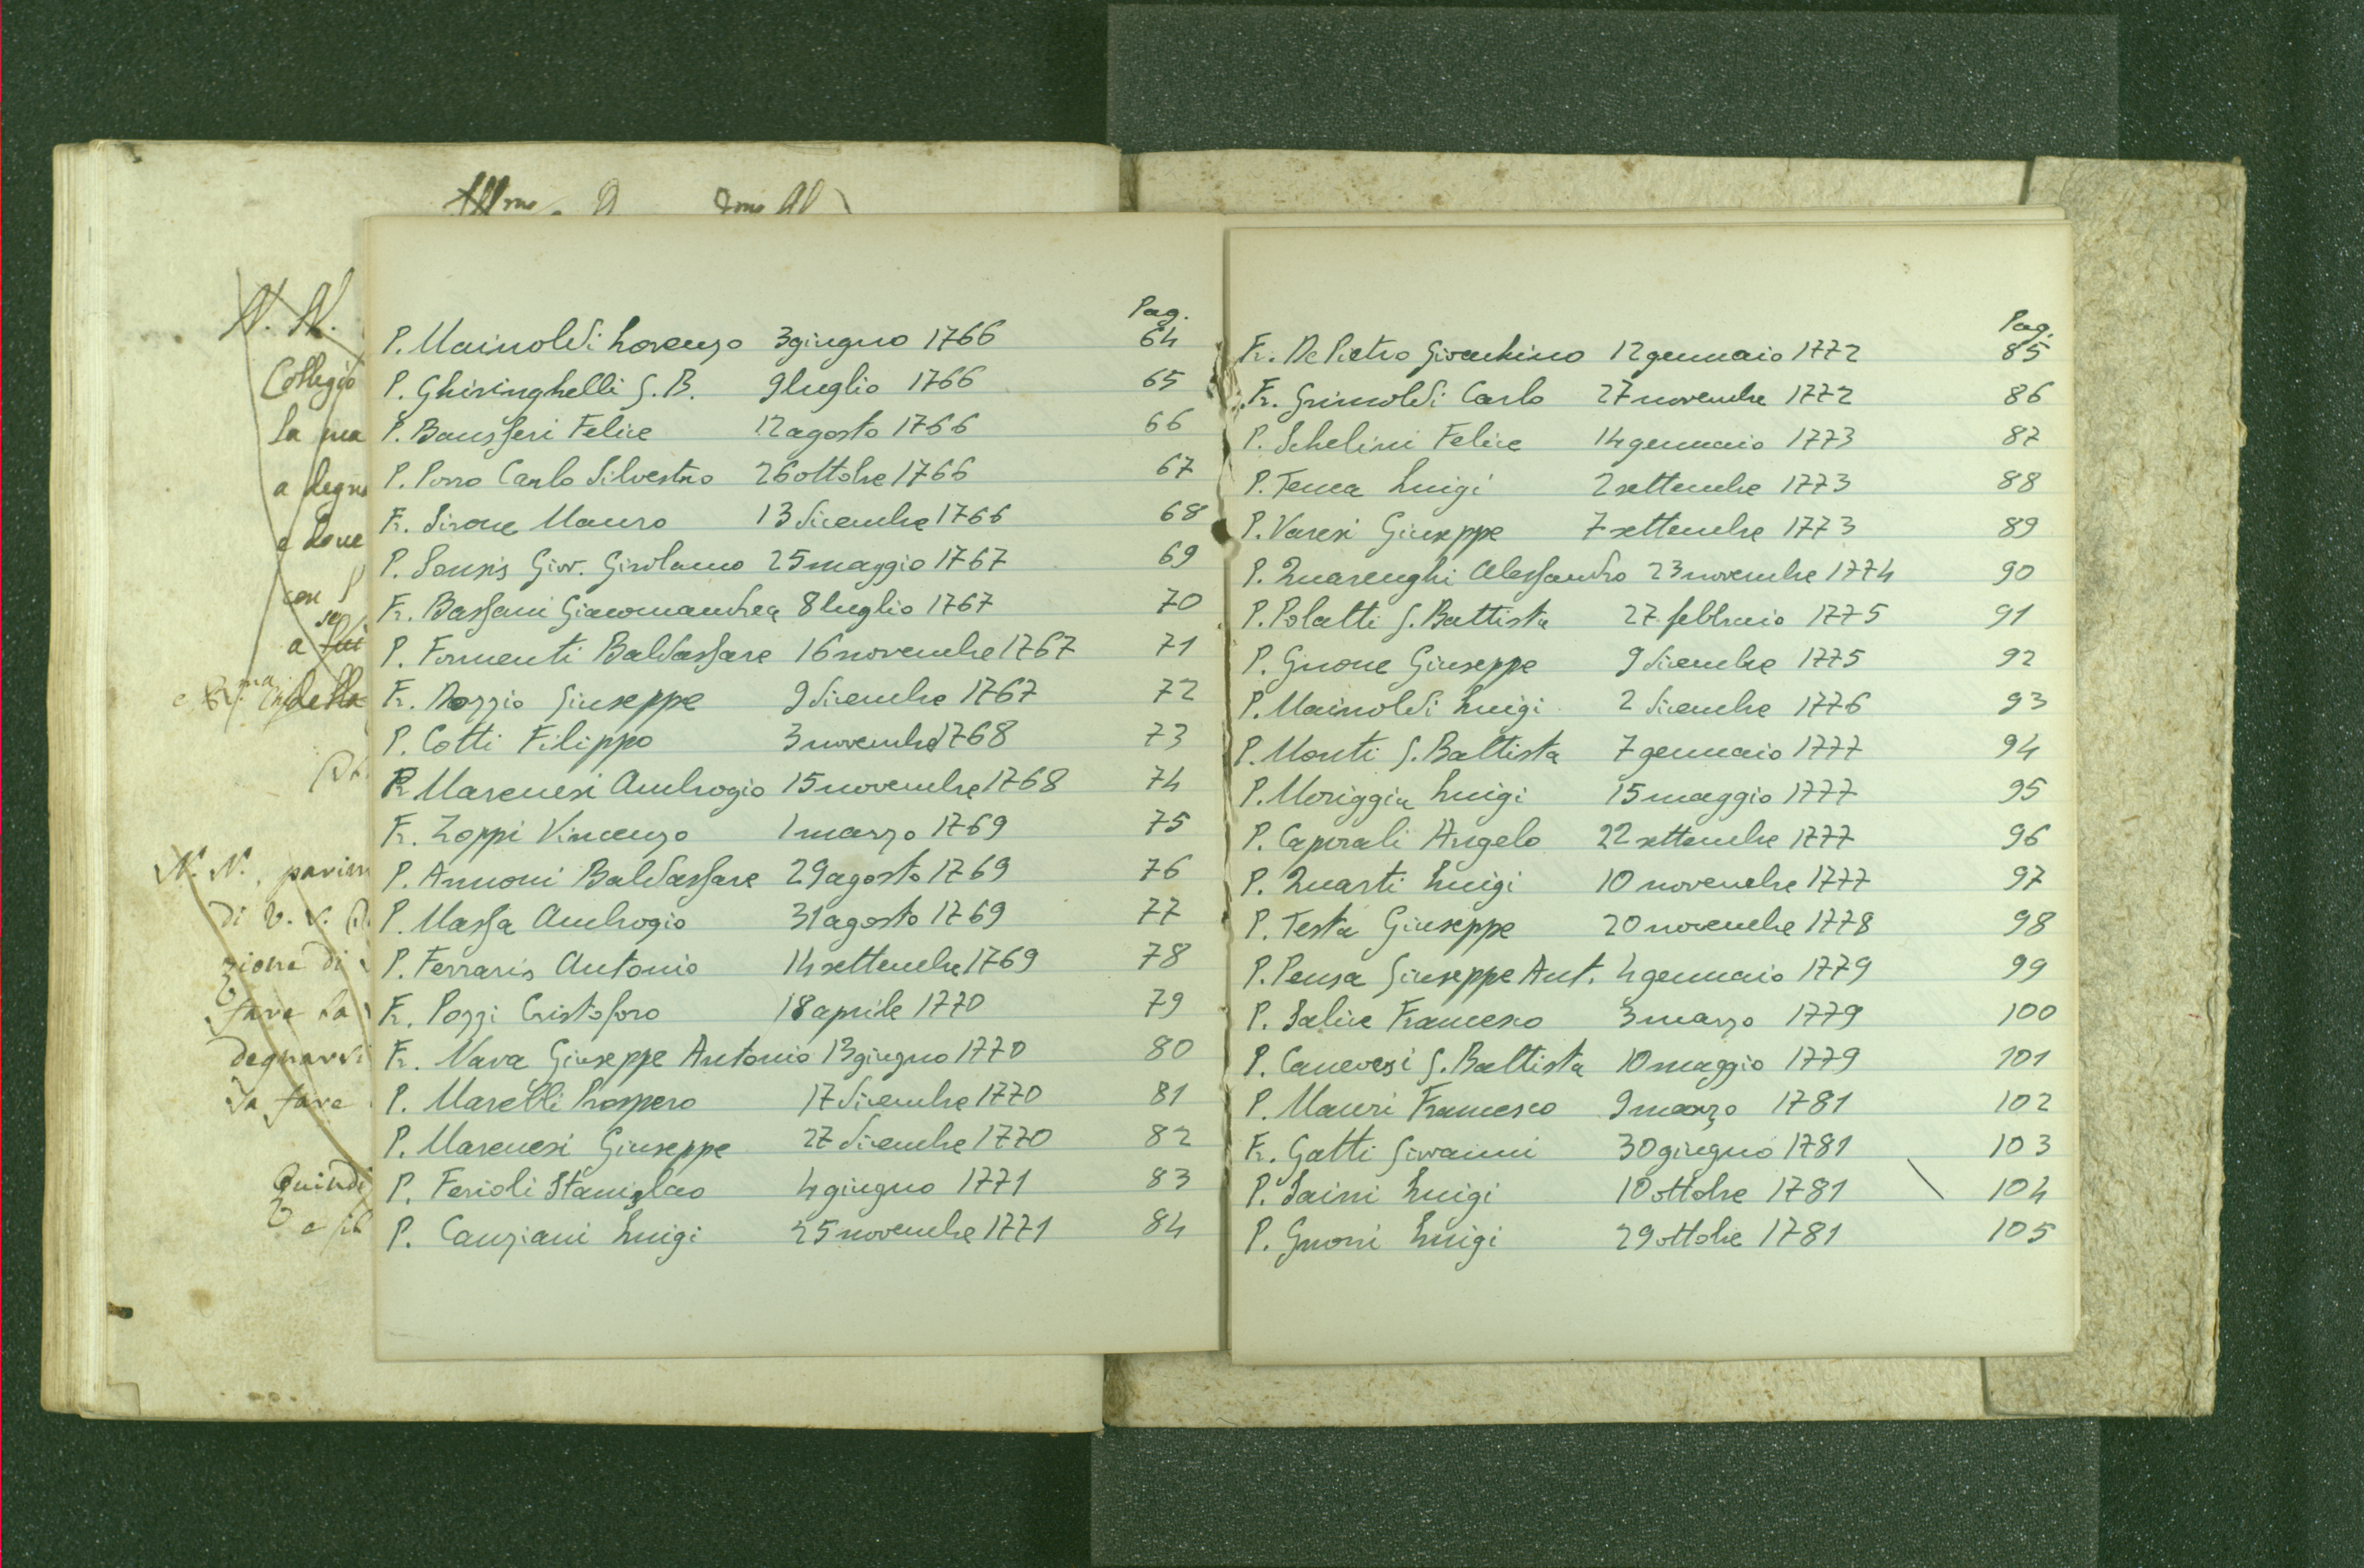 N. N.
Collegio
la ma
a degna
e dove
con p
se
a
della
N. N., parim
di V. S.
zione di
fare la
degnarsi
da fare
Quindi
Pag.
P. Mainoldi Lorenzo 3 giugno 1766 64
P. Ghiringhelli G. B. 9 luglio 1766 65
P. Bansferi Felice 12 agosto 1766 66
P. Porro Carlo Silvestro 26 ottobre 1766 67
Fr. Sirone Mauro 13 dicembre 1766 68
P. Sonsis Giov. Girolamo 25 maggio 1767 69
Fr. Bassani Giacomandrea 8 luglio 1767 70
P. Formenti Baldassare 16 novembre 1767 71
Fr. Rozzio Giuseppe 9 dicembre 1767 72
P. Cotti Filippo 3 novembre 1768 73
P. Marenesi Ambrogio 15 novembre 1768 74
Fr. Zoppi Vincenzo 1 marzo 1769 75
P. Annoni Baldassare 29 agosto 1769 76
P. Massa Ambrogio 31 agosto 1769 77
P. Ferraris Antonio 14 settembre 1769 78
Fr. Pozzi Cristoforo 18 aprile 1770 79
Fr. Nava Giuseppe Antonio 13 giugno 1770 80
P. Marelli Prospero 17 dicembre 1770 81
P. Marenesi Giuseppe 27 dicembre 1770 82
P. Ferioli Stanislao 4 giugno 1771 83
P. Canziani Luigi 25 novembre 1771 84
Pag.
Fr. De Pietro Gioachino 12 gennaio 1772 85
Fr. Grimoldi Carlo 27 novembre 1772 86
P. Schelini Felice 14 gennaio 1773 87
P. Tenca Luigi 2 settembre 1773 88
P. Varesi Giuseppe 7 settembre 1773 89
P. Quarenghi Alessandro 23 novembre 1774 90
P. Polatti G. Battista 27 febbraio 1775 91
P. Gnone Giuseppe 9 dicembre 1775 92
P. Mainoldi Luigi 2 dicembre 1776 93
P. Monti G. Battista 7 gennaio 1777 94
P. Moriggia Luigi 15 maggio 1777 95
P. Caporali Angelo 22 settembre 1777 96
P. Quarti Luigi 10 novembre 1777 97
P. Testa Giuseppe 20 novembre 1778 98
P. Pensa Giuseppe Ant. 4 gennaio 1779 99
P. Salice Francesco 3 marzo 1779 100
P. Canevesi G. Battista 10 maggio 1779 101
P. Mauri Francesco 9 marzo 1781 102
Fr. Gatti Giovanni 30 giugno 1781 103
P. Saini Luigi 10 ottobre 1781 \ 104
P. Gnoni Luigi 29 ottobre 1781 105